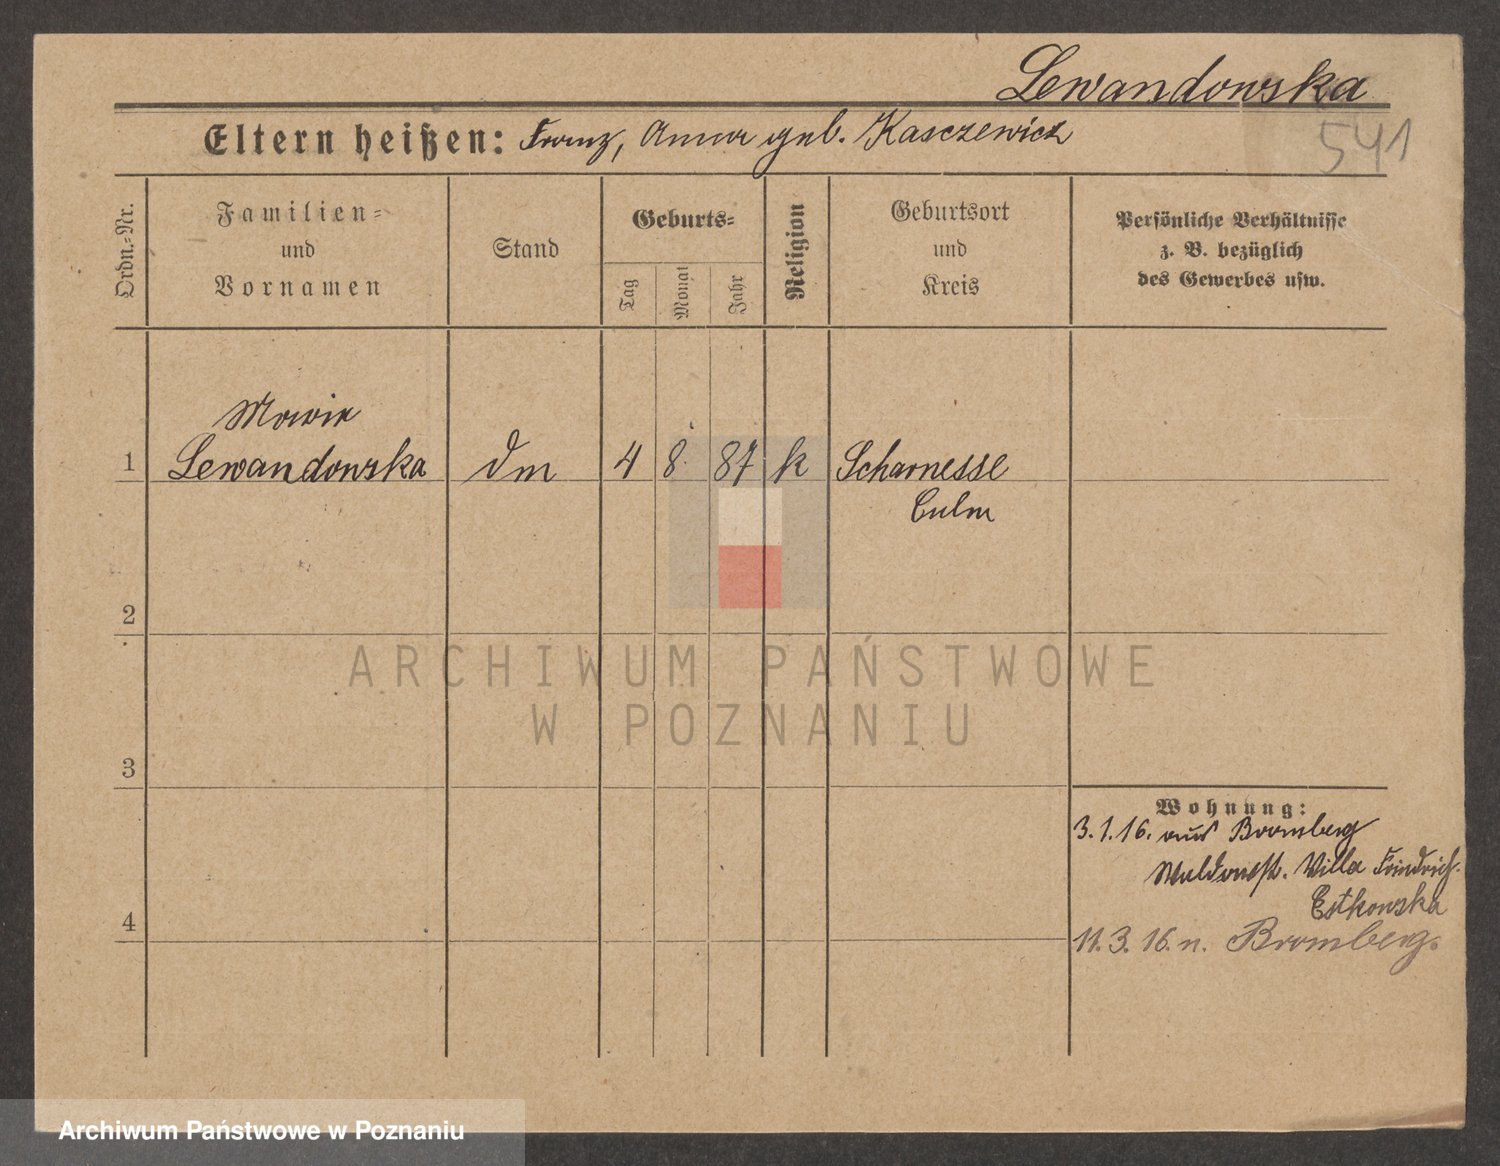 Lewandowska
541
Eltern heißen: Franz, Anna geb. Kasczewicz
Ordn.-Nr.
Familien-
und
Vornamen
Stand
Geburts-
Tag
Monat
Jahr
Religion
Geburtsort
und
Kreis
Persönliche Verhältnisse
z. B. bezüglich
des Gewerbes usw.
Marie
1 Lewandowska Dm 4 8. 87 k Scharnesse
Culm
2
ARCHIWUM PAŃSTWOWE
W POZNANIU
3
Wohnung:
3.1.16. aus Bromberg
Villa Friedrich.
Estkowska
4
11.3.16. n. Bromberg.
Archiwum Państwowe w Poznaniu